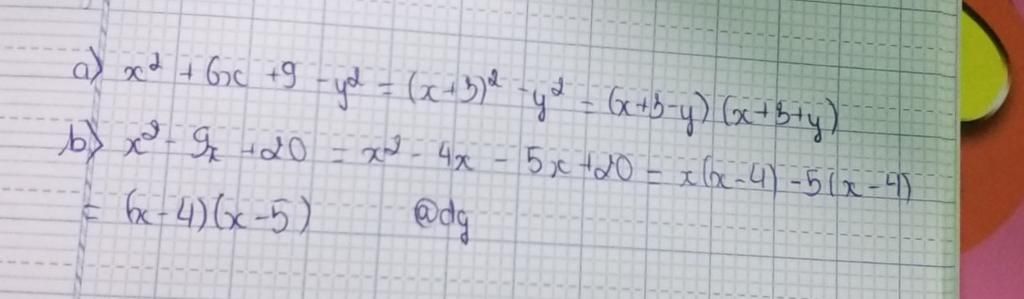 a) x² + 6x + 9 - y² = (x+3)² - y² = (x+3-y)(x+3+y)
b) x² - 9x + 20 = x² - 4x - 5x + 20 = x(x-4) - 5(x-4)
= (x-4)(x-5) @dg